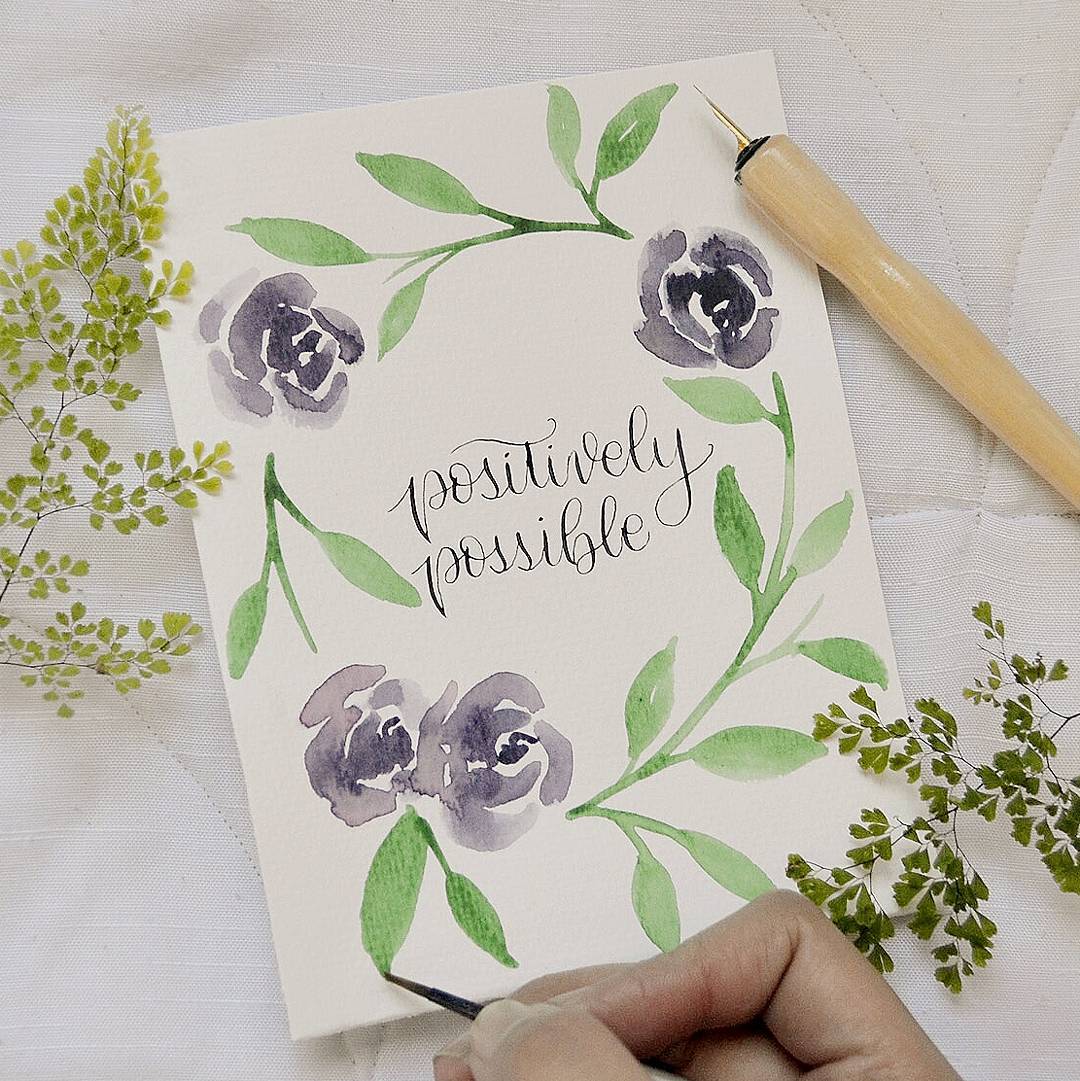 positively
possible